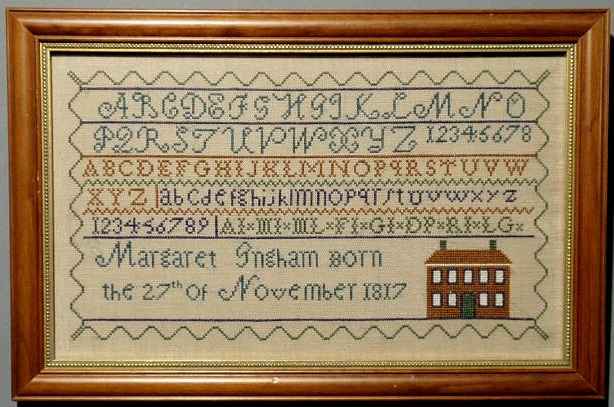 ABCDEFGHIJKLMNO
PQRSTUVWXYZ 12345678
ABCDEFGHIJKLMNOPQRSTUVW
XYZ abcdefghijklmnopqrstuvwxyz
123456789 AI×MI×ML×FI×GI×DP×RI×LG×
Margaret Ingham Born
the 27th Of November 1817